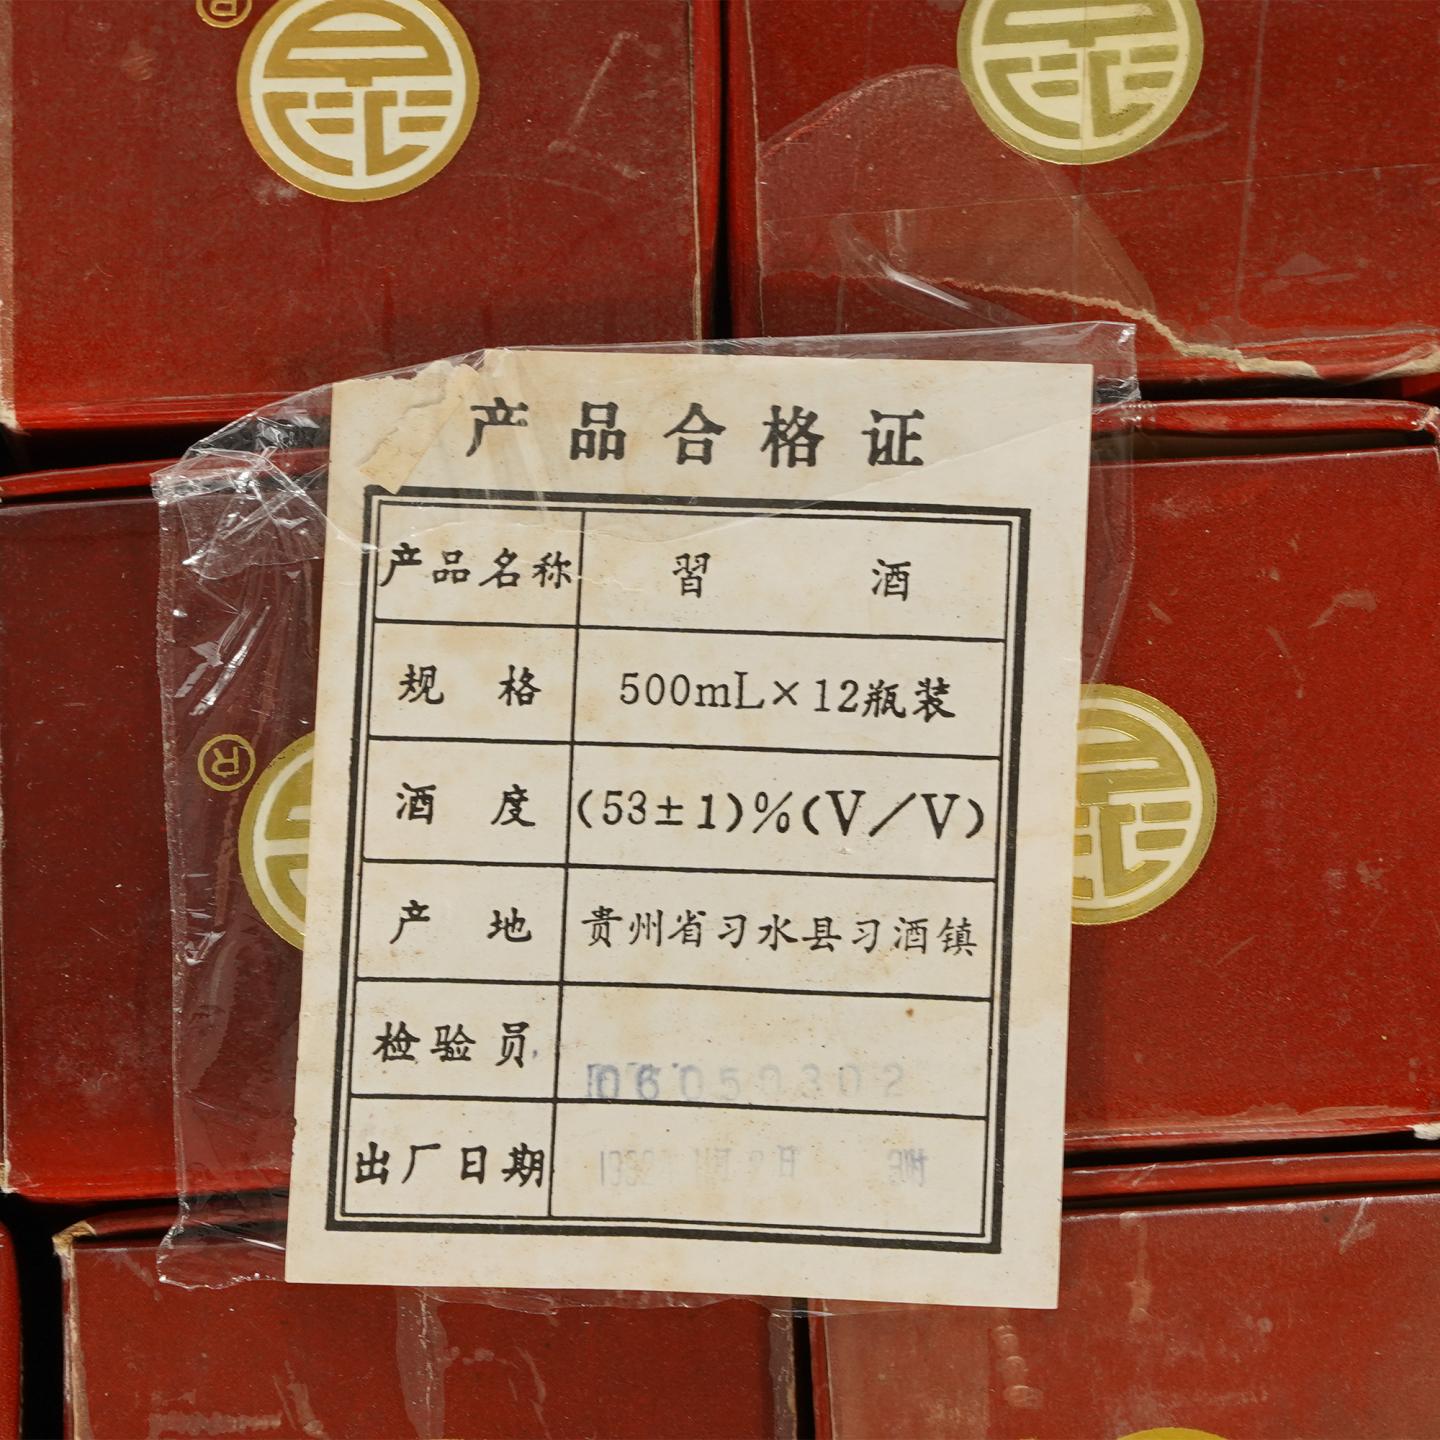 ®
产品合格证
产品名称 習 酒
规 格 500mL×12瓶装
酒 度 (53±1)%(V/V)
®
产 地 贵州省习水县习酒镇
检验员 06050302
出厂日期